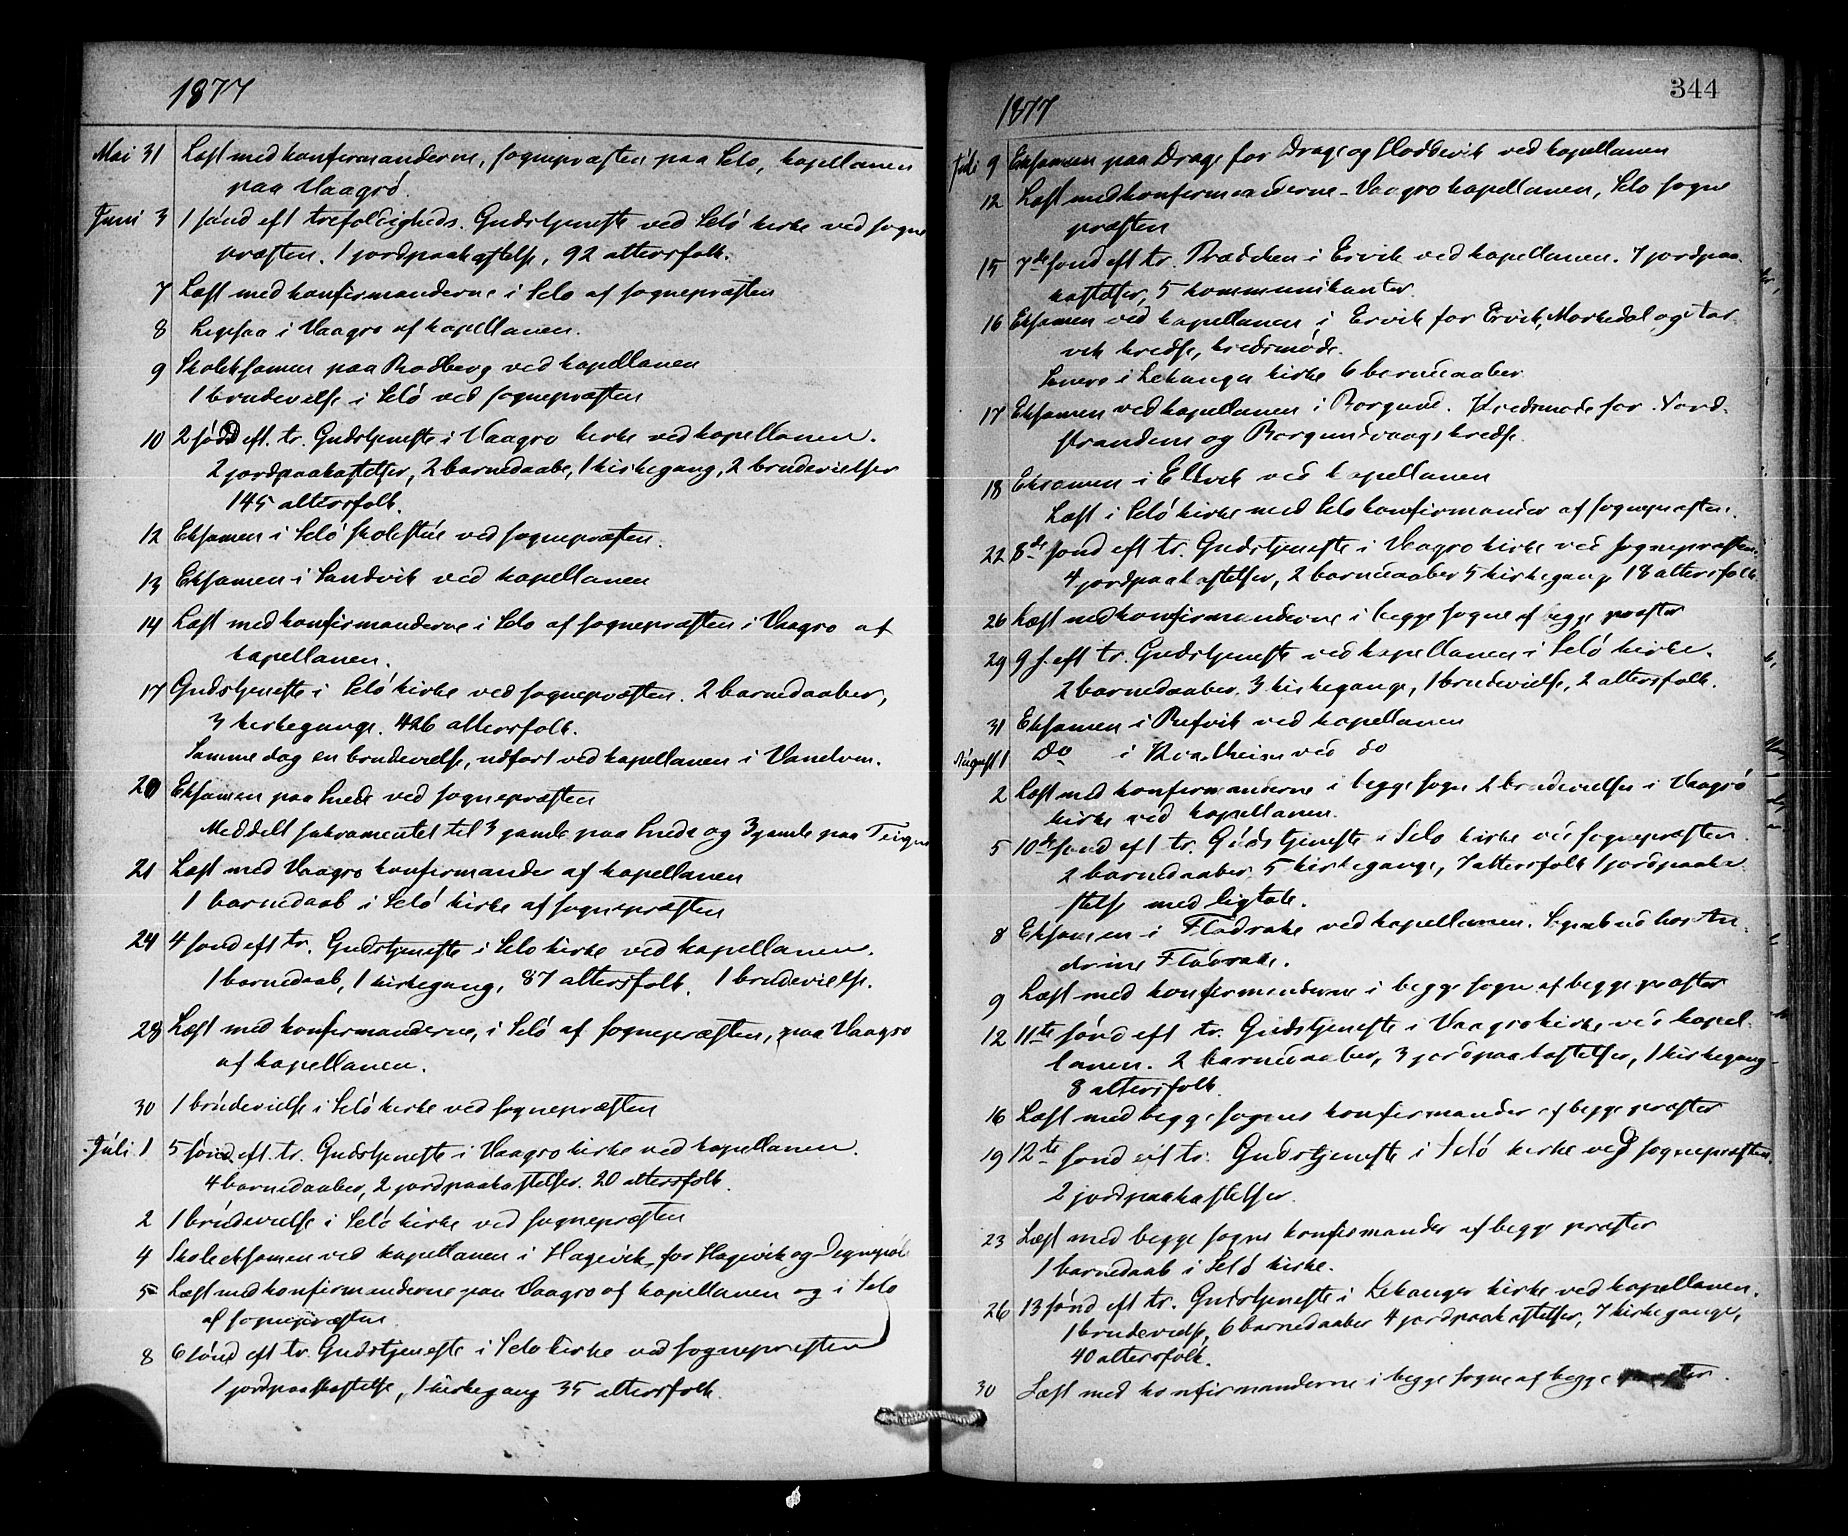 1877
Mai 31 Læst med konfirmanderne, sognepræsten paa Selø, kapellanen
paa Vaagsø.
Juni 3 1 sønd eft trefoldigheds. Gudstjeneste ved Selø kirke ved sogne
præsten. 1 jordpaakastelse, 92 altersfolk.
7 Læst med konfirmanderne i Selø af sognepræsten
8 Ligesaa i Vaagsø af kapellanen.
9 Skoleksamen paa Rødberg ved kapellanen
1 brudevielse i Selø ved sognepræsten
10 2 sønd eft. tr. Gudstjeneste i Vaagsø kirke ved kapellanen.
2 jordpaakastelser, 2 barnedaabe, 1 kirkegang, 2 brudevielser
145 altersfolk.
12 Eksamen i Selø skolestue ved sognepræsten.
13 Eksamen i Sandvik ved kapellanen
14 Læst med konfirmanderne i Selø af sognepræsten i Vaagsø af
kapellanen.
17 Gudstjeneste i Selø kirke ved sognepræsten. 2 barnedaaber,
3 kirkegange. 426 altersfolk.
Samme dag en brudevielse, udført ved kapellanen i Vanelven.
20 Eksamen paa Lrede ved sognepræsten
Meddelt sakramentet til 3 gamle paa og 3 gamle paa
21 Læst med Vaagsø konfirmander af kapellanen
1 barnedaab i Selø kirke af sognepræsten
24 4 sønd eft tr. Gudstjeneste i Selø kirke ved kapellanen.
1 barnedaab, 1 kirkegang, 87 altersfolk. 1 brudevielse.
28 Læst med konfirmanderne, i Selø af sognepræsten, paa Vaagsø
af kapellanen.
30 1 brudevielse i Selø kirke ved sognepræsten
Juli 1 5 sønd. eft. tr. Gudstjeneste i Vaagsø kirke ved kapellanen.
4 barnedaaber, 2 jordpaakastelser. 20 altersfolk.
2 1 brudevielse i Selø kirke ved sognepræsten
4 Skoleeksamen ved kapellanen i Hagevik, for Hagevik og Degnepøl
5 Læst med konfirmanderne paa Vaagsø af kapellanen og i Selø
af sognepræsten.
8 6 sønd eft tr. Gudstjeneste i Selø kirke ved sognepræsten
1 jordpaakastelse, 1 kirkegang 35 altersfolk.
344
1877
Juli 9 Eksamen paa Drage for Drage og Hoddevik ved kapellanen
12 Læst med konfirmanderne - Vaagsø kapellanen, Selø sogne
præsten
15 7de sønd eft tr. Prædiken i Ervik ved kapellanen. 7 jordpaa
kastelser, 5 kommunikanter.
16 Eksamen ved kapellanen i Ervik for Ervik, Mørkedal og
vik kredse, kredsmøde.
Senere i Lekanger kirke 6 barnedaaber
17 Eksamen ved kapellanen i Borgund. Kredsmøde for Nord-
strandens og Borgundvaags kredse.
18 Eksamen i Eltvik ved kapellanen
Læst i Selø kirke med Selø konfirmander af sognepræsten.
22 8de sønd eft tr. Gudstjeneste i Vaagsø kirke ved sognepræsten.
4 jordpaakastelser, 2 barnedaaber 5 kirkegang 18 altersfolk
26 Læst med konfirmanderne i begge sogne af begge præster
29 9 s. eft tr. Gudstjeneste ved kapellanen i Selø kirke.
2 barnedaaber. 3 kirkegange, 1 brudevielse, 2 altersfolk.
31 Eksamen i Refvik ved kapellanen
August 1 Do i Kvalheim ved do
2 Læst med konfirmanderne i begge sogne 2 brudevielser i Vaagsø
kirke ved kapellanen.
5 10de sønd eft tr. Gudstjeneste i Selø kirke ved sognepræsten.
2 barnedaaber. 5 kirkegange, 7 altersfolk 1 jordpaaka-
stelse med ligtale.
8 Eksamen i Flødrake ved kapellanen. hos An
drine Flodrake.
9 Læst med konfirmanderne i begge sogne af begge præster
12 11te sønd eft tr. Gudstjeneste i Vaagsø kirke ved kapel-
lanen. 2 barnedaaber, 3 jordpaakastelser, 1 kirkegang-
8 altersfolk.
16 Læst med begge sognes konfirmander af begge præster
19 12te sønd eft tr. Gudstjeneste i Selø kirke ved sognepræsten.
2 jordpaakastelser.
23 Læst med begge sognes konfirmander af begge præster
1 barnedaab i Selø kirke.
26 13 sønd eft tr. Gudstjeneste i Lekanger kirke ved kapellanen.
1 brudevielse, 6 barnedaaber 4 jordpaakastelser, 7 kirkegange,
40 altersfolk.
30 Læst med konfirmanderne i begge sogne af begge præster.